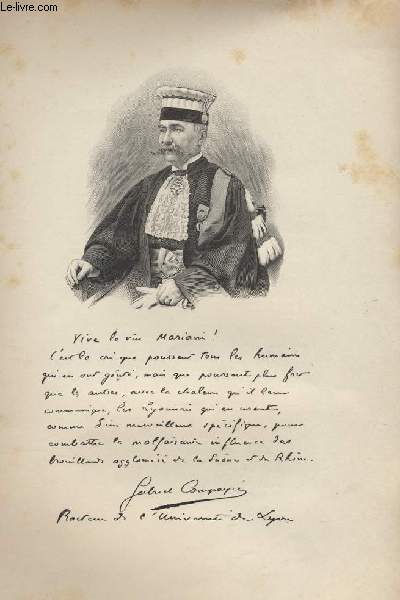 Le-livre.com
Vive le vin Mariani !
C'est le cri que poussent tous les humains
qui en ont goûté, mais que poussent plus fort
que les autres, avec la chaleur qu'il leur
communique, les Lyonnais qui en usent,
comme d'un merveilleux spécifique, pour
combattre la malfaisante influence des
brouillards de la Saône et du Rhône.
Gabriel Compayré
Recteur de l'Université de Lyon